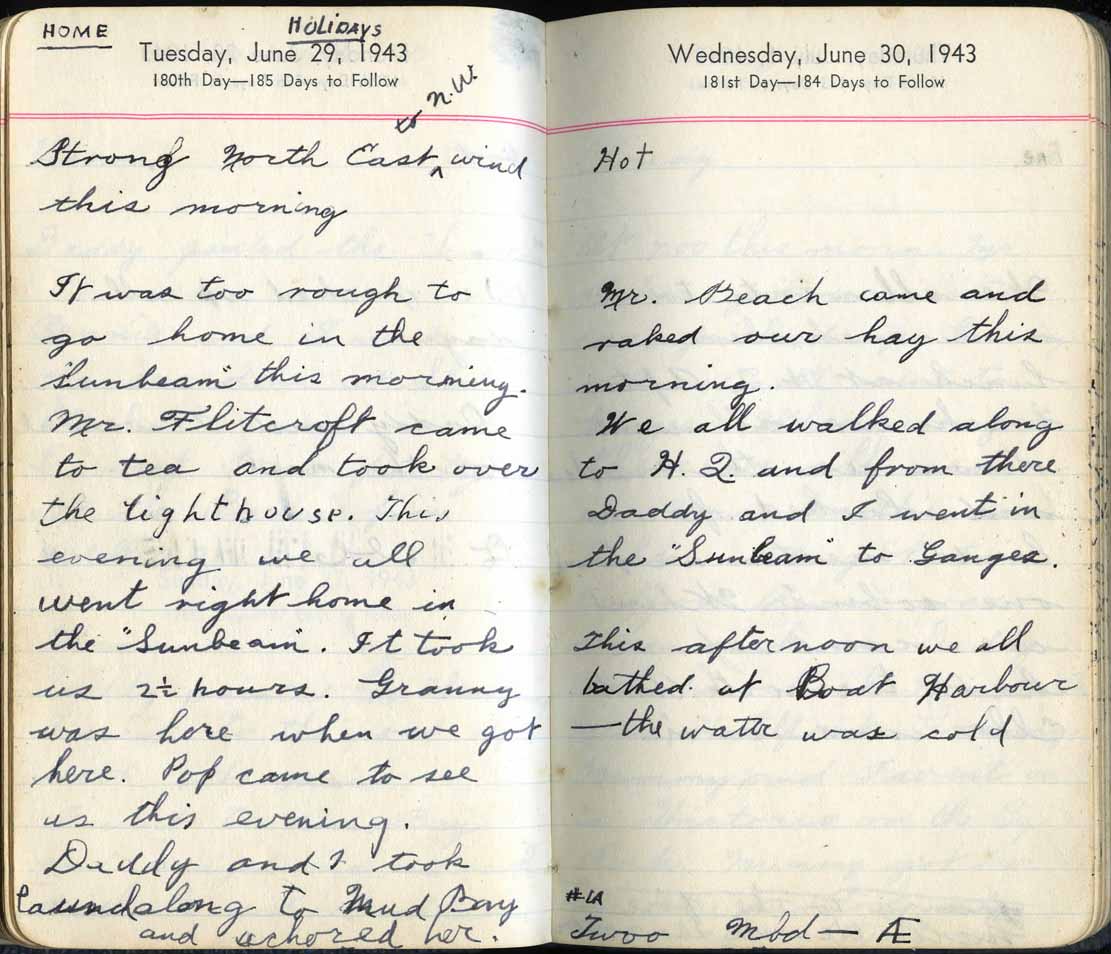 HOME
HOLIDAYS
Tuesday, June 29, 1943
180th Day—185 Days to Follow
to N.W.
Strong North East ^ wind
this morning
It was too rough to
go home in the
"Sunbeam" this morning.
Mr. Flitcroft came
to tea and took over
the lighthouse. This
evening we all
went right home in
the "Sunbeam". It took
us 2½ hours. Granny
was here when we got
here. Pop came to see
us this evening.
Daddy and I took
Launch along to Mud Bay
and achored her.
Wednesday, June 30, 1943
181st Day—184 Days to Follow
Hot
Mr. Beach came and
raked our hay this
morning.
We all walked along
to H.Q. and from there
Daddy and I went in
the "Sunbeam" to Ganges.
This afternoon we all
bathed at Boat Harbour
—the water was cold
#LA
Twoo Mbd— Æ